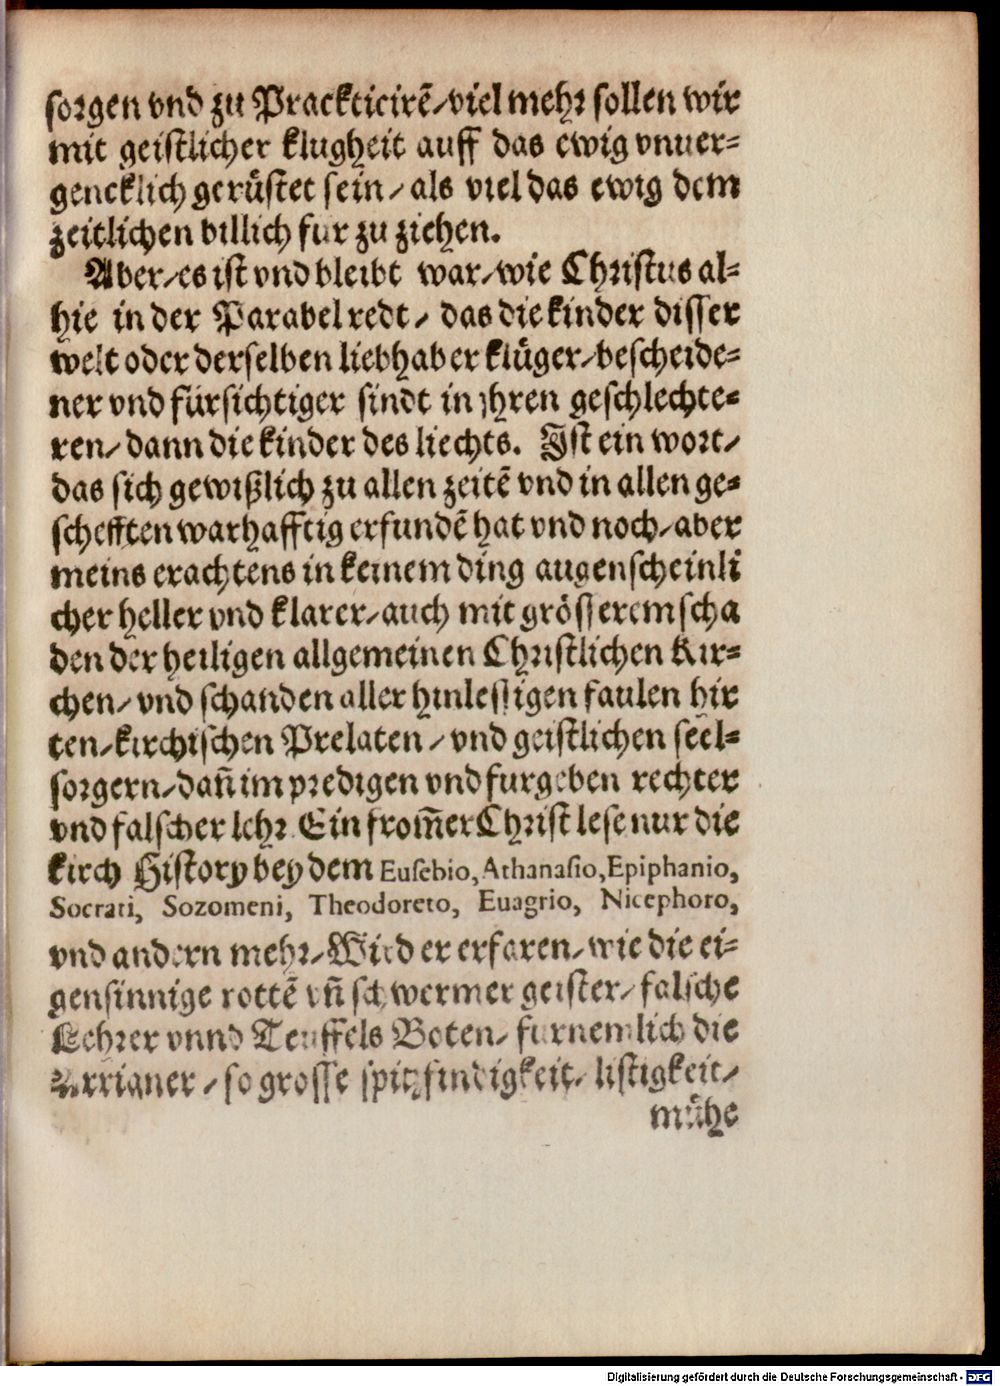 sorgen vnd zu Prackticirē/viel mehr sollen wir
mit geistlicher klugheit auff das ewig vnuer-
gencklich gerüstet sein/ als viel das ewig dem
zeitlichen billich fur zu ziehen.
Aber/es ist vnd bleibt war/wie Christus al-
hie in der Parabel redt/ das die kinder disser
welt oder derselben liebhaber klüger/bescheide-
ner vnd fürsichtiger sindt in jhren geschlechte-
ren/ dann die kinder des liechts. Ist ein wort/
das sich gewißlich zu allen zeitē vnd in allen ge-
schefften warhafftig erfundē hat vnd noch/aber
meins erachtens in keinem ding augenscheinli
cher heller vnd klarer/auch mit grösserem scha
den der heiligen allgemeinen Christlichen Kir-
chen/ vnd schanden aller hinlessigen faulen hir
ten/kirchischen Prelaten/ vnd geistlichen seel-
sorgern/dañ im predigen vnd furgeben rechter
vnd falscher lehr. Ein from̄er Christ lese nur die
kirch History bey dem Eusebio, Athanasio, Epiphanio,
Socrati, Sozomeni, Theodoreto, Euagrio, Nicephoro,
vnd andern mehr/Wird er erfaren/wie die ei-
gensinnige rottē vñ schwermer geister/ falsche
Lehrer vnnd Teuffels Boten/ furnemlich die
Arrianer/ so grosse spitzfindigkeit/ listigkeit/
mühe
Digitalisierung gefördert durch die Deutsche Forschungsgemeinschaft - DFG